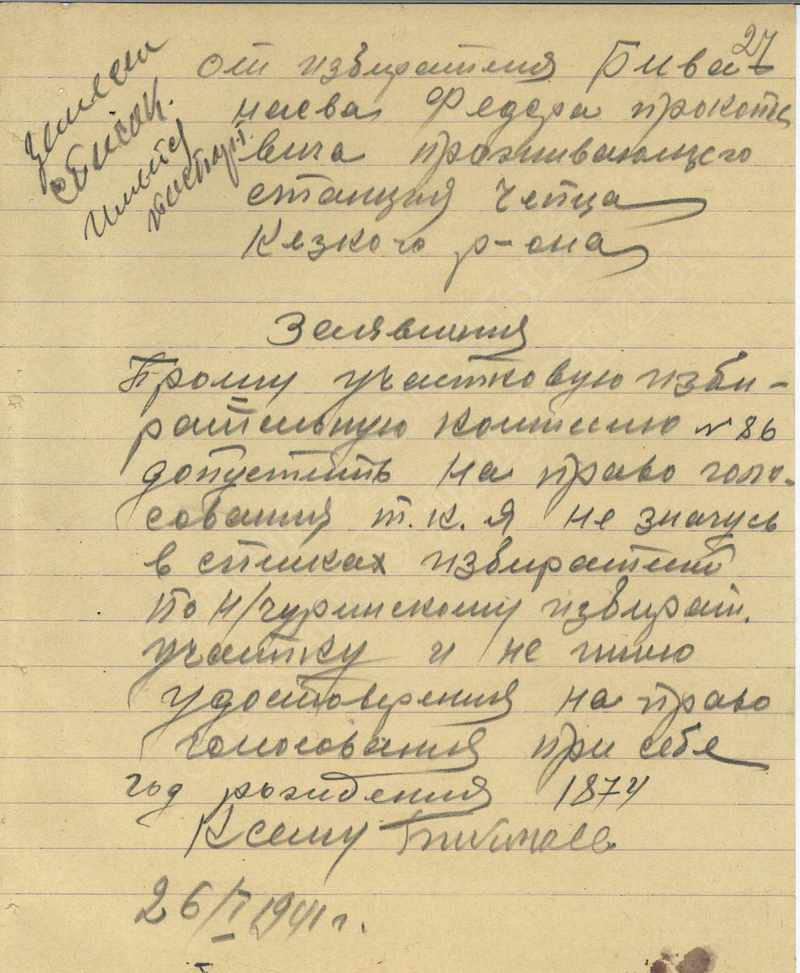 27
от избирателя Бива-
наева Федера прокопь
вича проживающего
станция Чепца
Кезкого р-она
Заявления
Прошу участковую изби-
рательную комисию № 86
допустить на право голо-
сования т.к. я не значусь
в списках избирателей
по Н/чуринскому избират.
участку и не имею
удостоверения на право
голосования при себе
год рождения 1874
К сему
26/I 1941 г.
список.
паспорт.